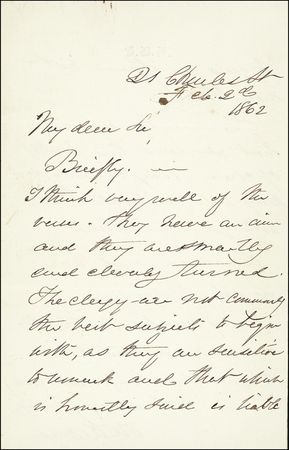 21 Charles St
Feb. 2d
1862
My dear Sir,
Briefly. —
I think very well of the
verses. They have an aim
and they are smartly
and cleverly turned.
The clergy are not commonly
the best subjects to begin
with, as they are sensitive
to remark and that which
is honestly said is liable